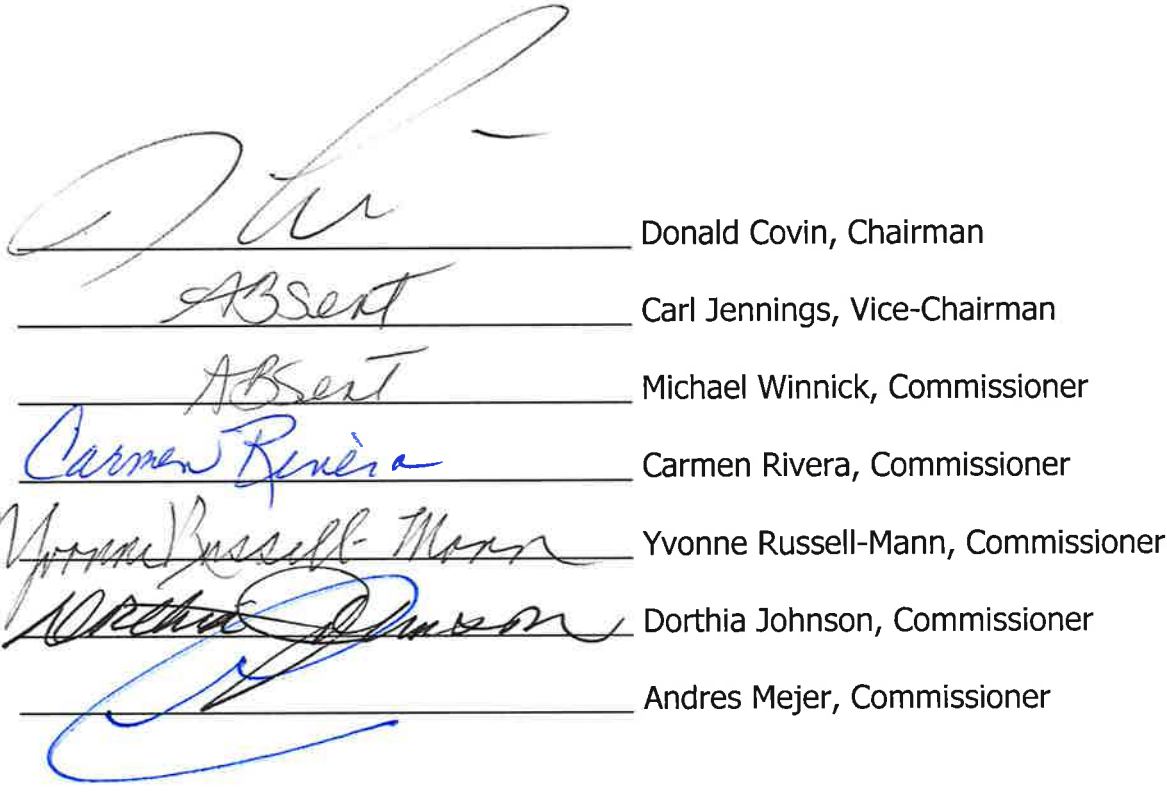 Donald Covin, Chairman
ABsent Carl Jennings, Vice-Chairman
ABsent Michael Winnick, Commissioner
Carmen Rivera Carmen Rivera, Commissioner
Yvonne Russell-Mann Yvonne Russell-Mann, Commissioner
Dorthia Johnson Dorthia Johnson, Commissioner
Andres Mejer, Commissioner